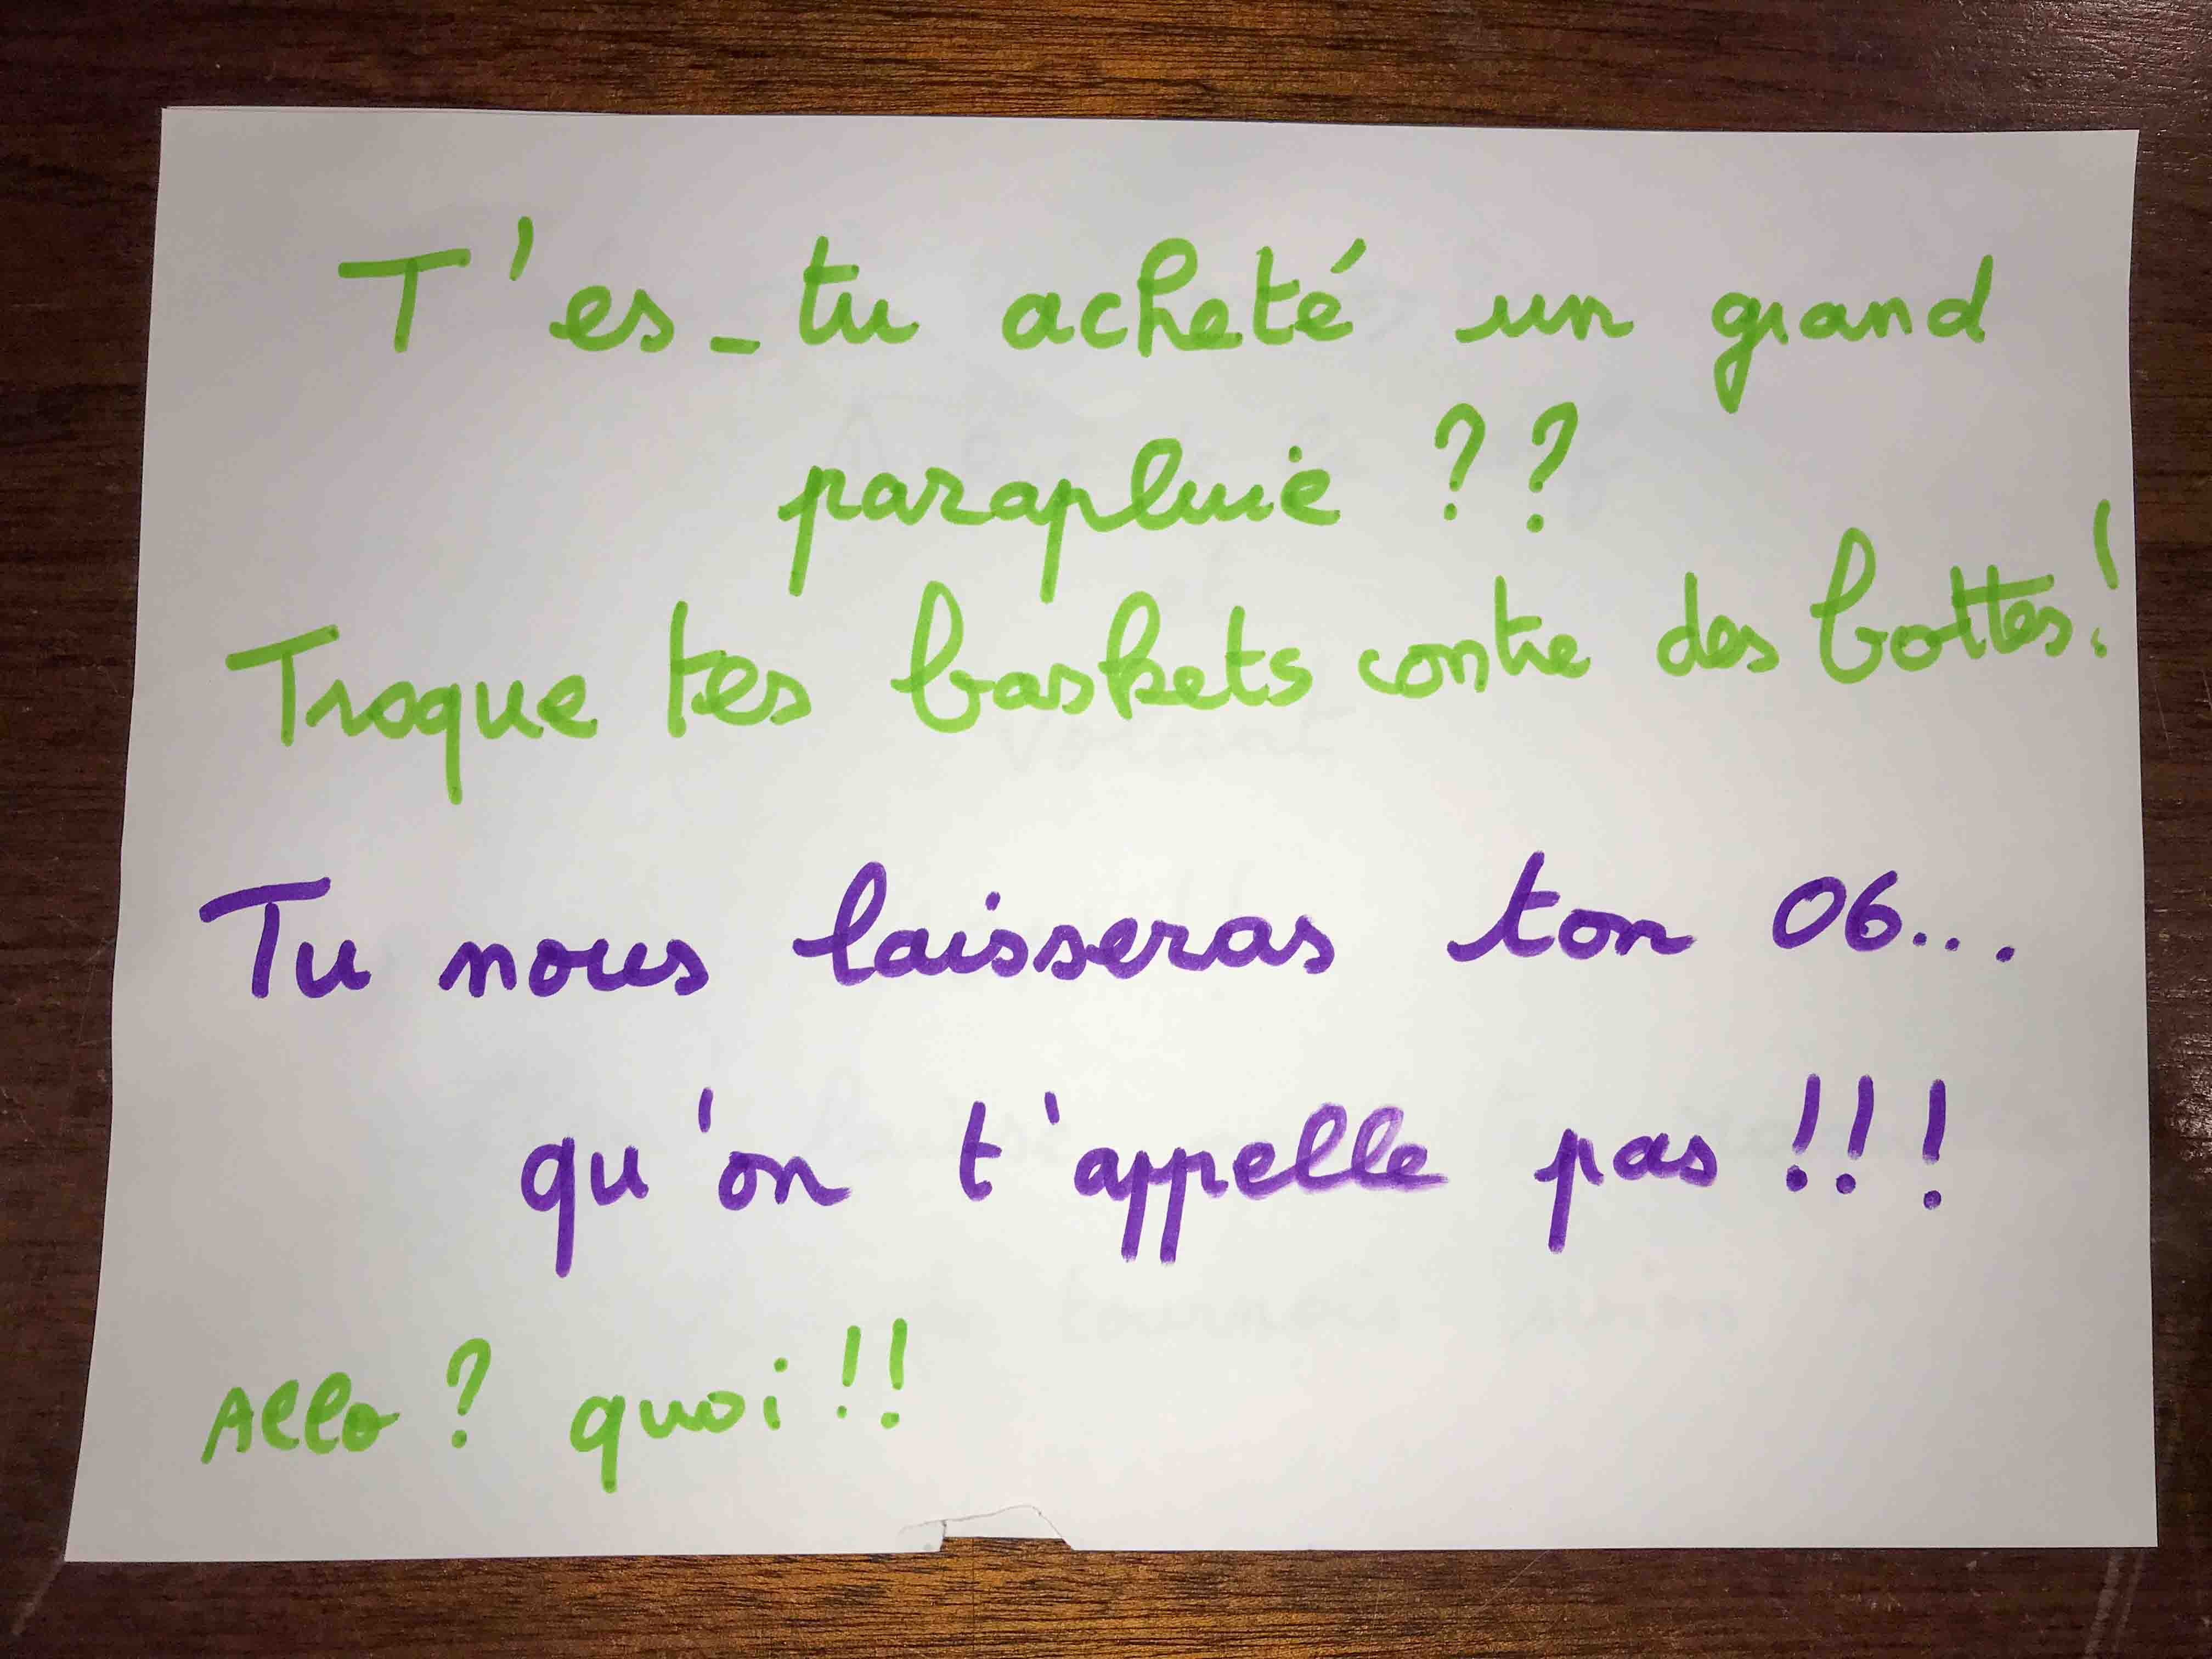 T'es-tu acheté un grand
parapluie ??
Troque tes baskets contre des bottes!
Tu nous laisseras ton 06...
qu'on t'appelle pas !!!
Allo ? quoi !!